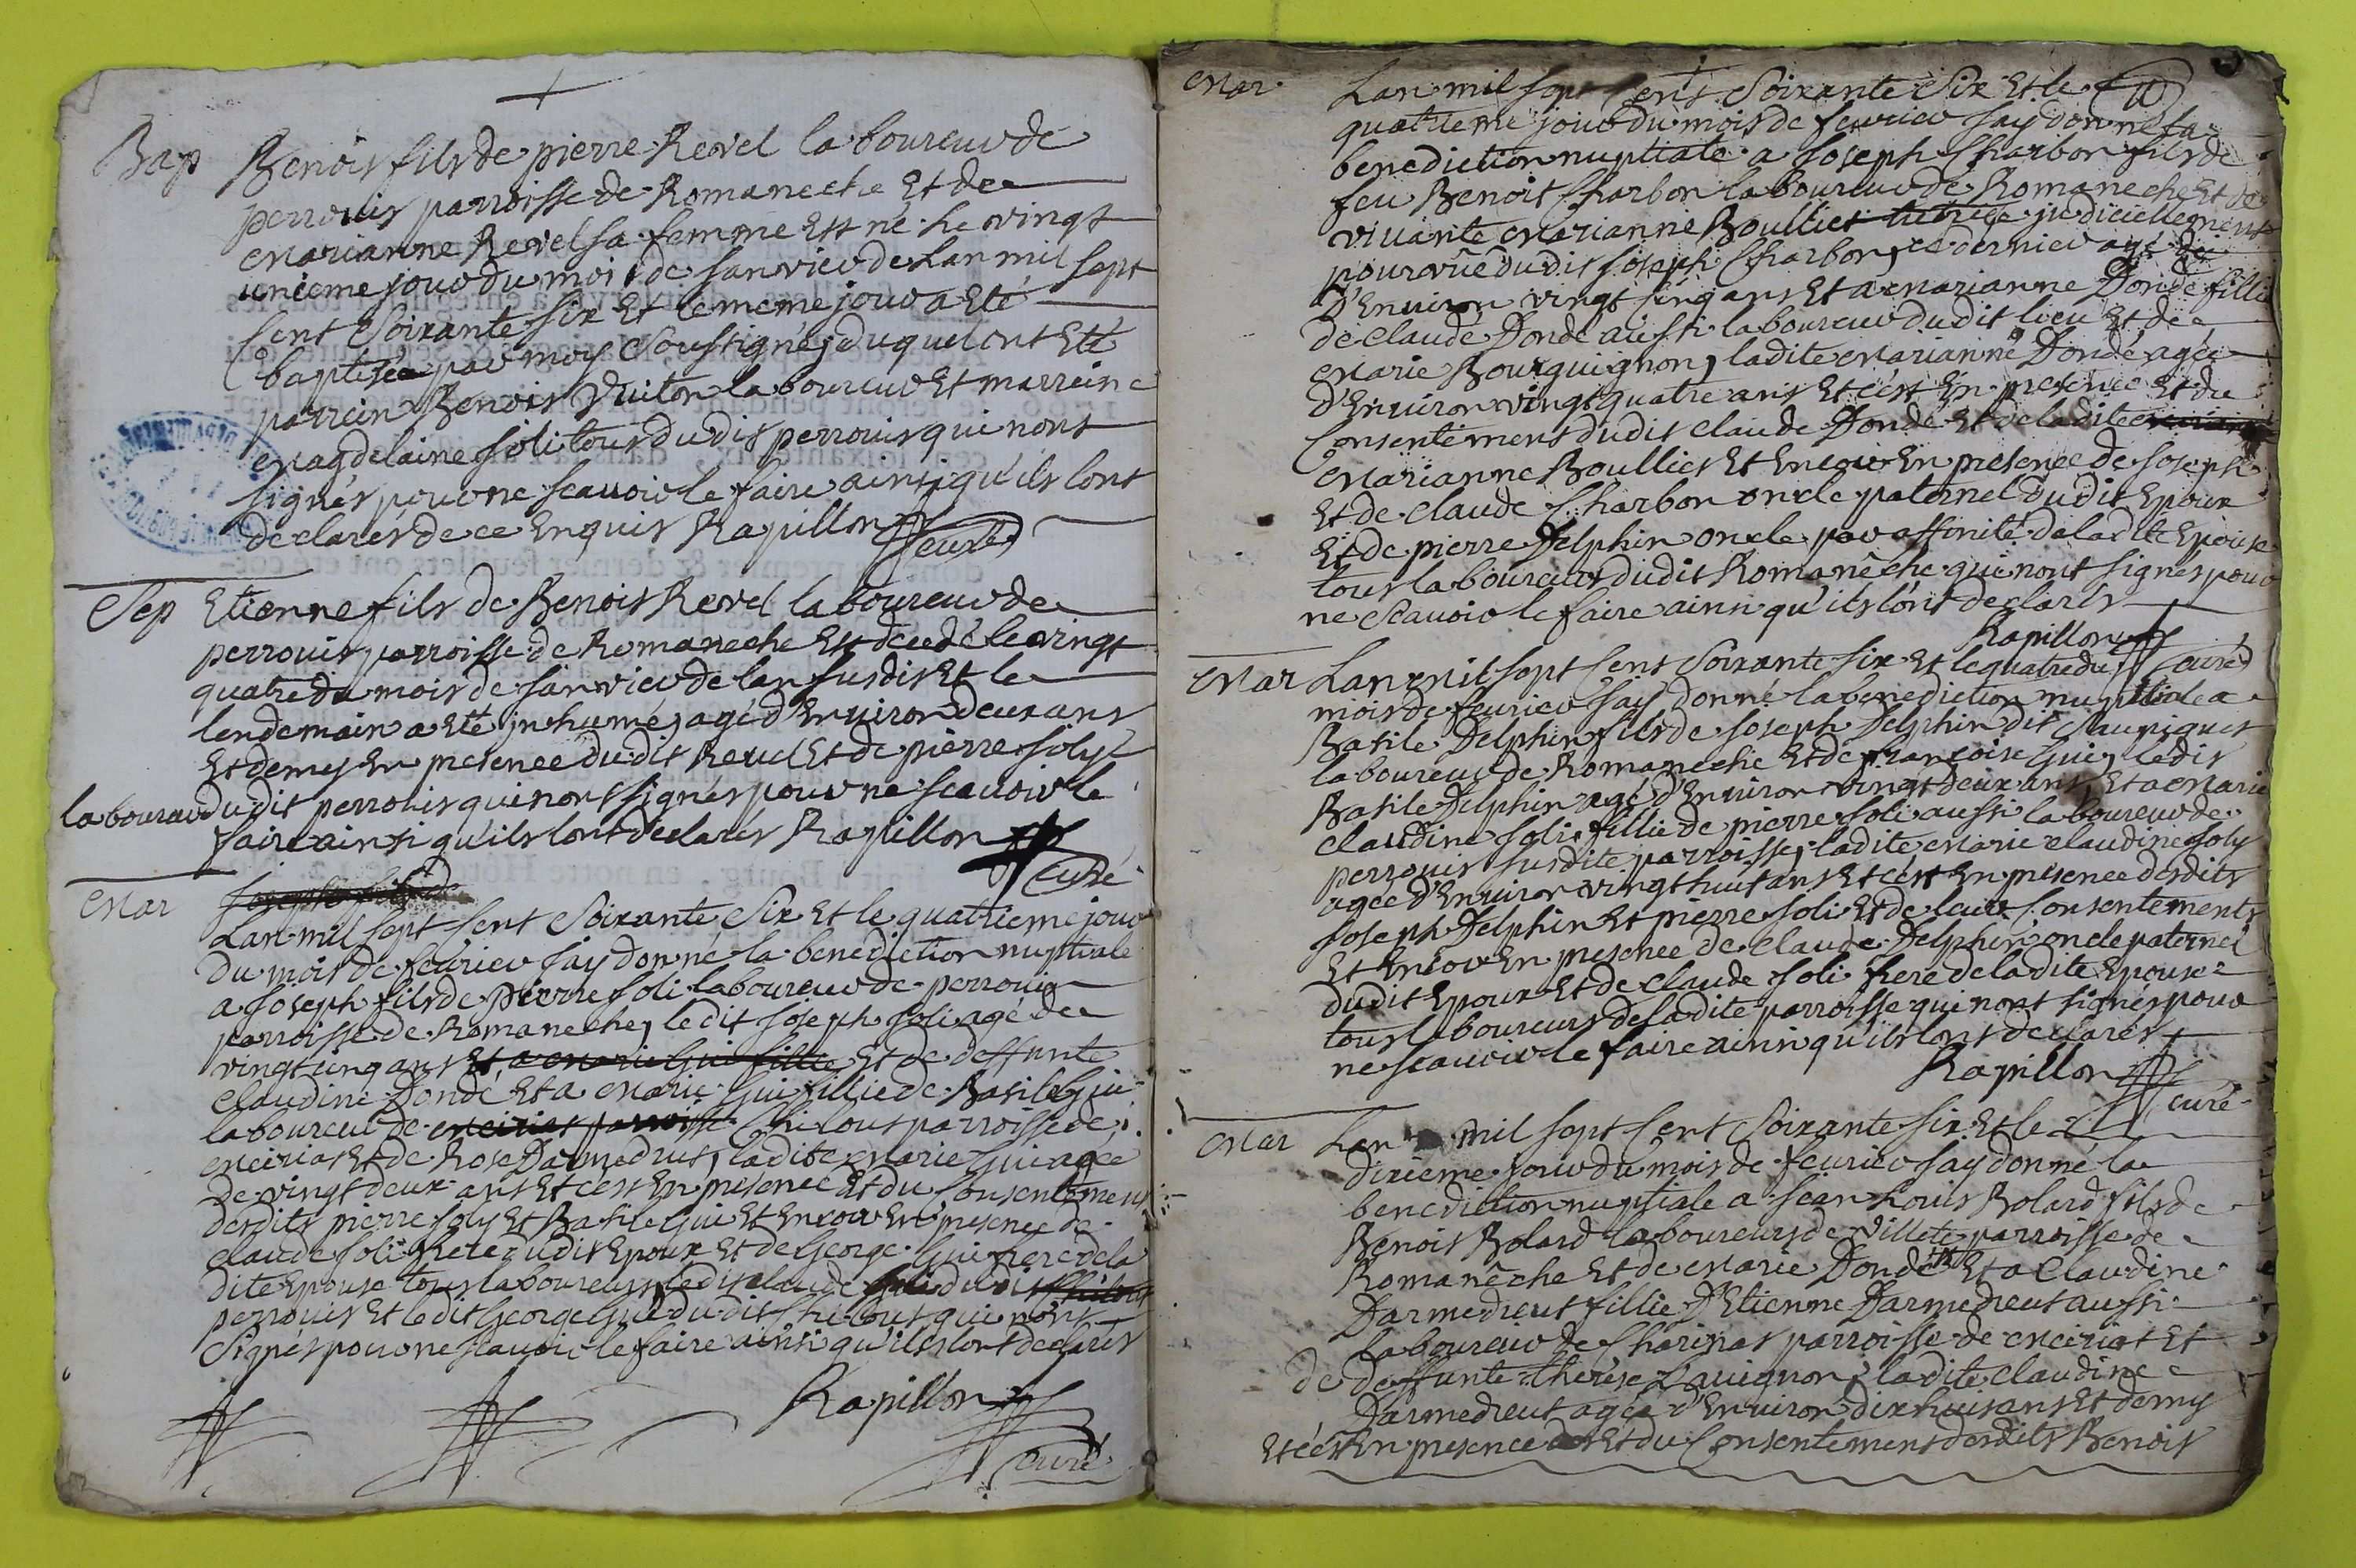 Bap
Benois fils de pierre Revel laboureur de
perrouis parroisse de Romaneche Et de
Marianne Revel sa femme Est né Le vingt
unieme jour du mois de Janvier de Lan mil sept
Cent Soixante Six Et le meme jour a Eté
baptisé par moy Soussigné, duquel ont Eté
parrein Benois Vuiton laboureur Et marreine
Magdelaine Joli tous du dis perrouis qui nont
signés pour ne scauoir le faire ainsi qu'ils lont
declares de ce Enquis Rapillon
Curé
Sep
Etienne fils de Benois Revel laboureur de
perrouis parroisse de Romaneche Est decedé le vingt
quatre du mois de Janvier de lan susdis Et le
lendemain a Eté jnhumé, agé d'Enuiron deux ans
Et demy En presence du dit Revel Et de pierre Joly
laboureur du dit perrouis qui nont signés pour ne scauoir le
faire ainsi qu'ils lont declarés Rapillon
Curé
Mar
Joseph fils de
Lan mil sept Cent Soixante Six Et le quatrieme jour
du mois de feurier Jay donné la benediction nuptiale
a Joseph fils de Pierre Joli laboureur de perrouis
parroisse de Romaneche, le dit Joseph Joli agé de
vingt cinq ans Et a Marie Gui fillie Et de deffunte
Claudine Dondé Et a Marie Gui fillie de Basile Gui
laboureur de Meirias parroisse Chilout parroisse de
Meirias Et de Rose Darmedrus, la dite Marie Gui agée
de vingt deux ans Et cest En presence Et du Consentement
desdits pierre Joly Et Basile Gui Et Encour En presence de
Claude Joli frere du dit Epoux Et de George Gui frere de la
dite Epouse tous laboureurs, le dit Claude Joli du dit Chilout
perrouis Et le dit George Gui du dit Chilout qui nont
Signés pour ne Scauoir le faire ainsi qu'ils lont declarés
Rapillon
Curé
Mar
Lan mil sept Cent Soixante Six Et le
quatrieme jour du mois de feurier Jay donné la
benediction nuptiale a Joseph Charbon fils de
feu Benoit Charbon laboureur de Romaneche Et de
viuante Marianne Boullier tutrice judiciellement
pourvûe du dis Joseph Charbon, ce dernier agé de
D'Enuiron vingt Cinq ans Et a Marianne Dondé fillie
de Claude Dondé aussi laboureur du dit lieu Et de
Marie Bourguignon, ladite Marianne Dondé agée
d'Enuiron vingt quatre ans Et cest En presence Et du
Consentement dudis Claude Dondé Et de ladite
Marianne Boullier Et Encour En presence de Joseph
Et de Claude Charbon oncle paternel du dit Epoux
Et de pierre Delphin oncle par affinité de la dite Epouse
tous laboureurs du dit Romanêche qui nont signés pour
ne Scauoir le faire ainsi qu'ils lont declarés
Rapillon
Curé
Mar
Lan mil sept Cent Soixante Six Et le quatre du
mois de feurier Jay donné la benediction nuptiale a
Basile Delphin fils de Joseph Delphin dit Claupiquet
laboureur de Romaneche Et de françoise Gui, le dis
Basile Delphin agé d'Enuiron vingt deux ans, Et a Marie
Claudine Joli fillie de pierre Joli aussi laboureur de
perrouis susdite parroisse, la dite Marie Claudine Joly
agée d'Enuiron vingt huit ans Et cest En presence desdits
Joseph Delphin Et pierre Joli Et de leur Consentements
Et Encour En presence de Claude Delphin oncle paternel
du dit Epoux Et de Claude Joli frere de la dite Epouse
tous laboureurs de la dite parroisse qui nont signés pour
ne scauoir le faire ainsi qu'ils lont declarés
Rapillon
Curé
Mar
Lan mil sept Cent Soixante Six Et le
dixieme jour du mois de feurier Jay donné la
benediction nuptiale a Jean Louis Bolard fils de
Benois Bolard laboureurs de Villete parroisse de
Romanêche Et de Marie Dondé Et a Claudine
Darmedreut fillie D'Etienne Darmedreut aussi
laboureur de Charinas parroisse de Meiriat Et
de deffunte therese Lauignon, la dite Claudine
Darmedreut agée d'Enuiron dix huis ans Et demy
Et cest En presence Et du Consentement desdits Benois